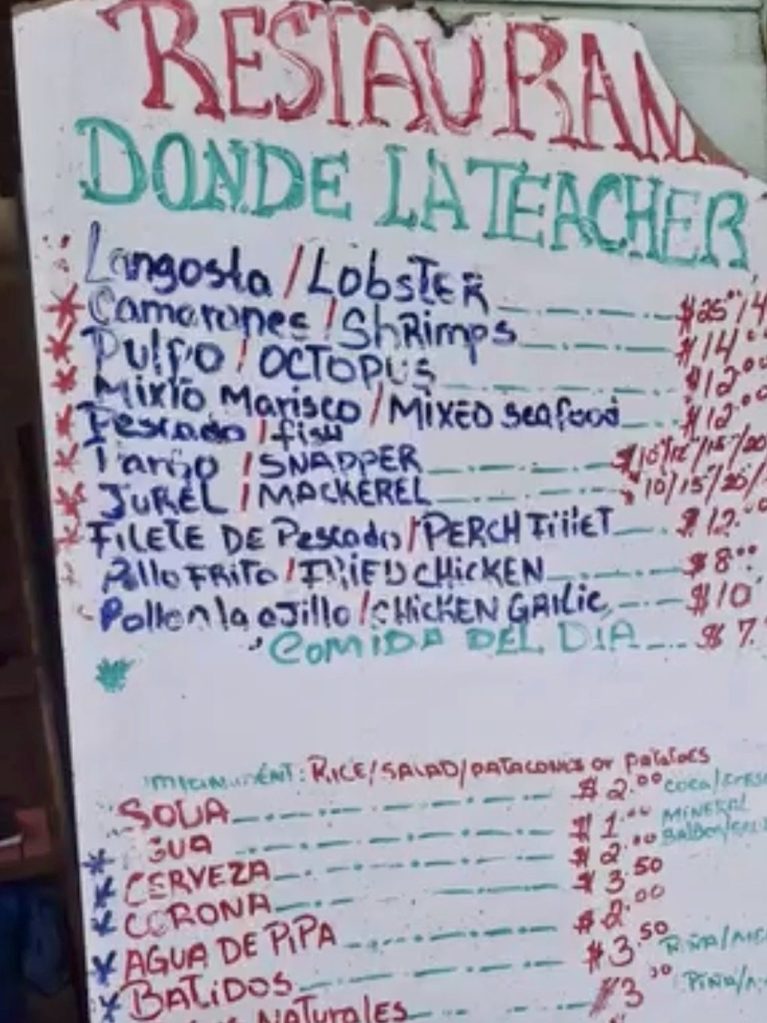 RESTAURAN
DONDE LA TEACHER
Langosta / LObsTER $25
Camarones / ShRimps $14.00
Pulpo / OCTOPUS $12.00
MIXTO MARISCO / MIXED seafood $12.00
Pescado / fish
Pargo / SNAPPER
JUREL / MACKEREL $10/15/20/
FILETE DE Pescado / PERCH FillET $12.00
Pollo FRITO / FRIED CHICKEN $8.00
Pollo a la ajillo / CHICKEN GARLIC $10
COMIDA DEL DIA $7.
RICE/SALAD/PATACONES or potatoes
SODA $2.00 COCA/
AGUA $1.00 MINERAL
CERVEZA $2.00 BALBOA/
CORONA $3.50
AGUA DE PIPA $2.00
BATIDOS $3.50 PIÑA/
NATURALES $3 PIÑA/